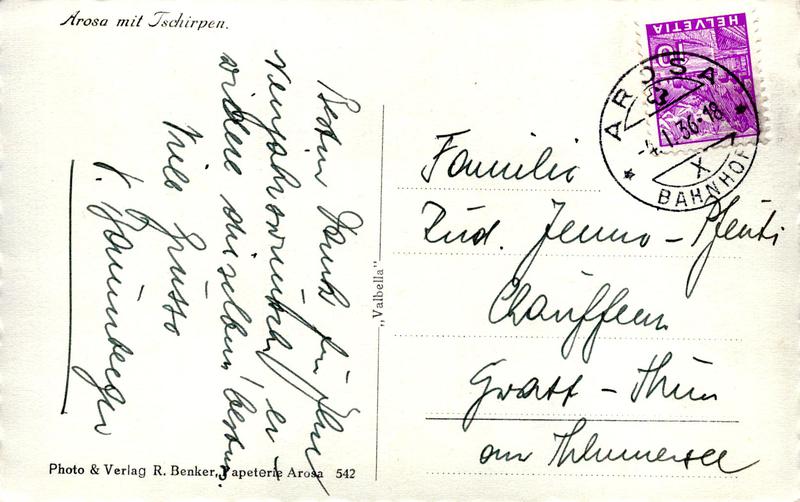 Arosa mit Tschirpen.
Besten Dank für Ihre
Neujahrswünsche, er-
widere dieselben bestens.
Viele Grüsse
„Valbella"
HELVETIA
10
AROSA
-4.I.36-18
X
BAHNHOF
Familie
Rud. Jenno - Pfenti
Chauffeur
Gwatt - Thun
am Thunersee
Photo & Verlag R. Benker, Papeterie Arosa 542